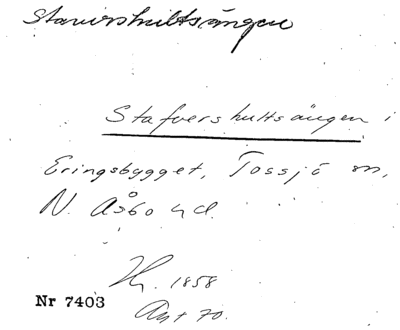 Stavershultsängen
Stafvershultsängen i
Eringsbygget, Tossjö sn,
N. Åsbo hd.
Hy. 1858
Nr 7403
Ant 70.